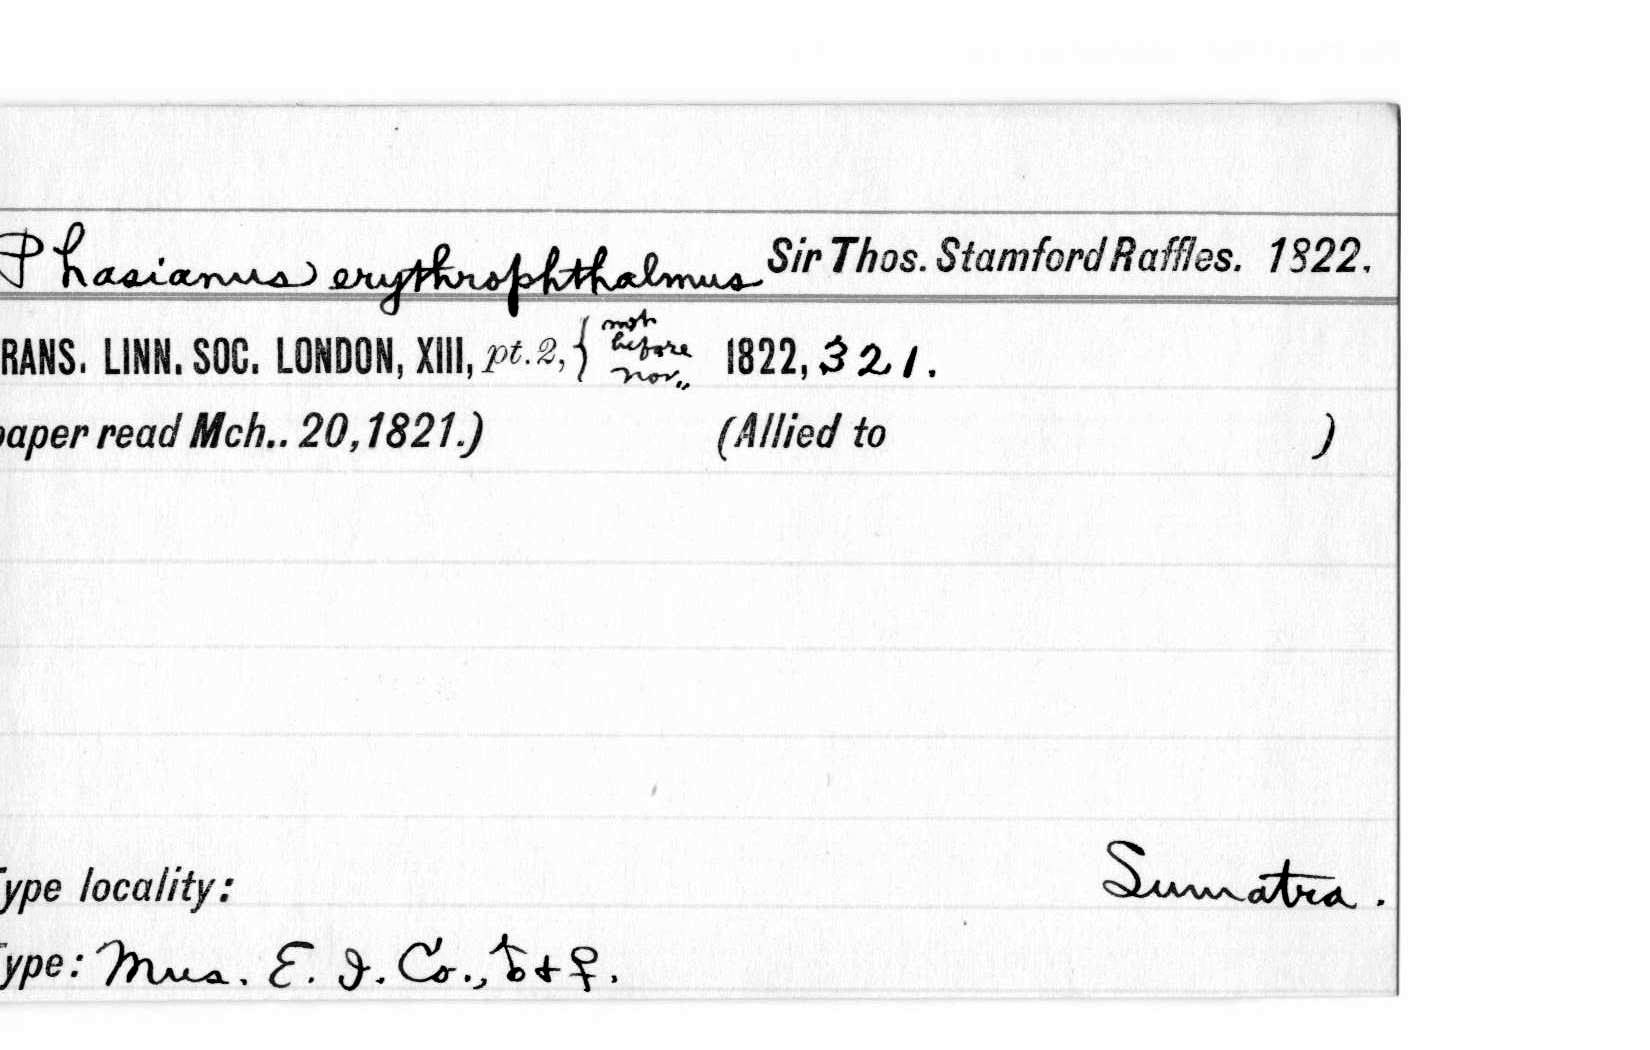 Phasianus erythrophthalmus Sir Thos. Stamford Raffles. 1822.
RANS. LINN. SOC. LONDON, XIII, pt. 2, { not before Nov., 1822, 321.
paper read Mch.. 20, 1821.) (Allied to )
Type locality: Sumatra.
Type: Mus. E. I. Co., ♂ + ♀.